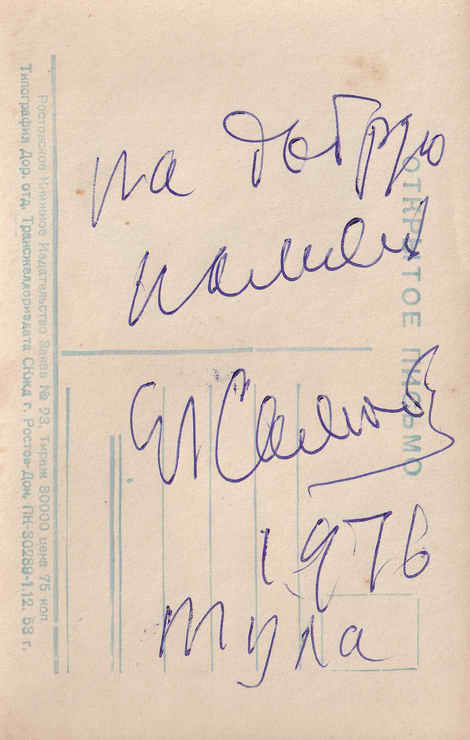 на добрую
память
1976
Тула
ОТКРЫТОЕ ПИСЬМО
Ростовское Книжное Издательство Заказ № 93. Тираж 80000 цена 75 коп
Типография Дор. отд. Трансжелдориздата СКжд г. Ростов-Дон. ПК-30289-1.12 53 г.